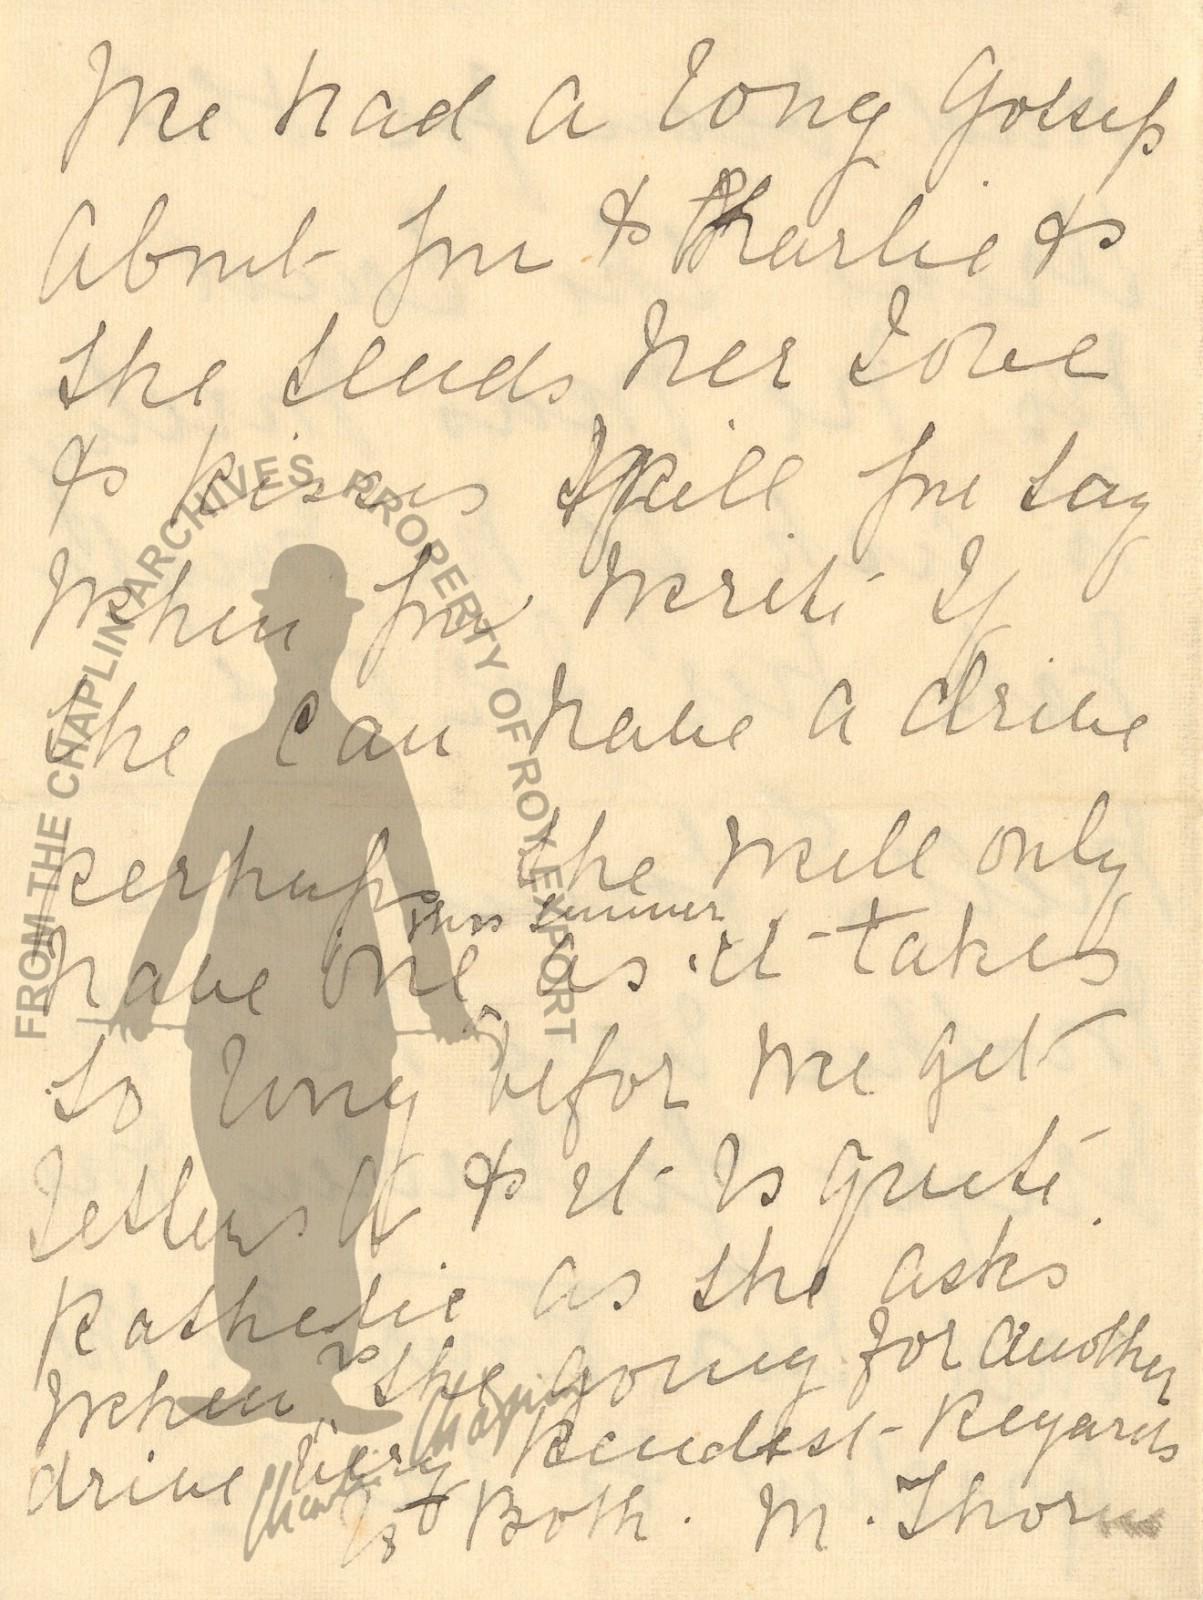 We had a long Gossip
About you & Charlie &
she sends her Love
& kisses Will you say
When you Write If
she Can have a drive
perhaps she will only
have one this summer as it takes
so long befor we get
letters & it Is quite
Pathetic as she asks
When is she going for another
drive Very Kindest Regards
to Both. M. Thorn
FROM THE CHAPLIN ARCHIVES, PROPERTY OF ROY EXPORT
Charlie Chaplin